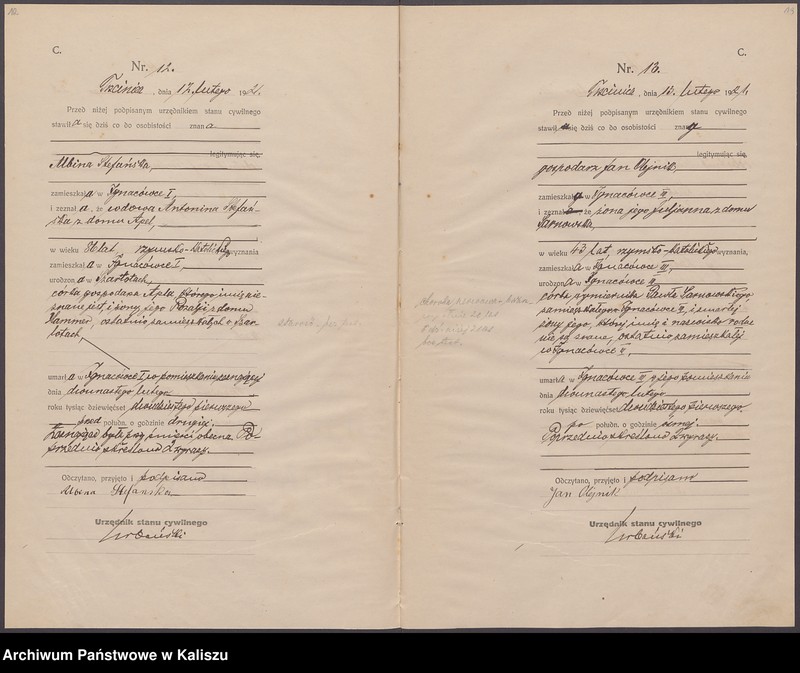 C.
Nr. 12.
Trzcinica, dnia 12 lutego 1921.
Przed niżej podpisanym urzędnikiem stanu cywilnego
stawiła się dziś co do osobistości znana
legitymując się,
Albina Stefańska,
zamieszkała w Ignacówce I,
i zeznała, że wdowa Antonina Stefań-
ska z domu Apel,
w wieku lat, rzymsko-katolickiego wyznania
zamieszkała w Ignacówce I,
urodzona w
córka gospodarza Apla, którego imię nie-
znane jest, i żony jego z domu
Hammer, ostatnio zamieszkałych w
umarła w Ignacówce I w pomieszkaniu zeznającej
dnia dwunastego lutego
roku tysiąc dziewięćset dwudziestego pierwszego
przed połudn. o godzinie drugiej.
Zeznająca była przy śmierci obecna. Po-
przednio skreślono 2 wyrazy.
Odczytano, przyjęto i podpisano
Albina Stefańska
Urzędnik stanu cywilnego
C.
Nr. 13.
Trzcinica, dnia 12. lutego 1921.
Przed niżej podpisanym urzędnikiem stanu cywilnego
stawił się dziś co do osobistości znany
legitymując się,
gospodarz Jan Olejnik,
zamieszkały w Ignacówce III,
i zeznał że żona jego z domu
Sarnowska,
w wieku 43 lat, rzymsko-katolickiego wyznania,
zamieszkała w Ignacówce III,
urodzona w Ignacówce II
córka wymiernika Pawła Sarnowskiego
zamieszkałego w Ignacówce II, i zmarłej
żony jego, której imię i nazwisko rodowe
nie są znane, ostatnio zamieszkałej
w Ignacówce II,
umarła w Ignacówce III w jego pomieszkaniu
dnia dwunastego lutego
roku tysiąc dziewięćset dwudziestego pierwszego
po połudn. o godzinie ósmej.
Poprzednio skreślono 2 wyrazy.
Odczytano, przyjęto i podpisano
Jan Olejnik
Urzędnik stanu cywilnego
Archiwum Państwowe w Kaliszu